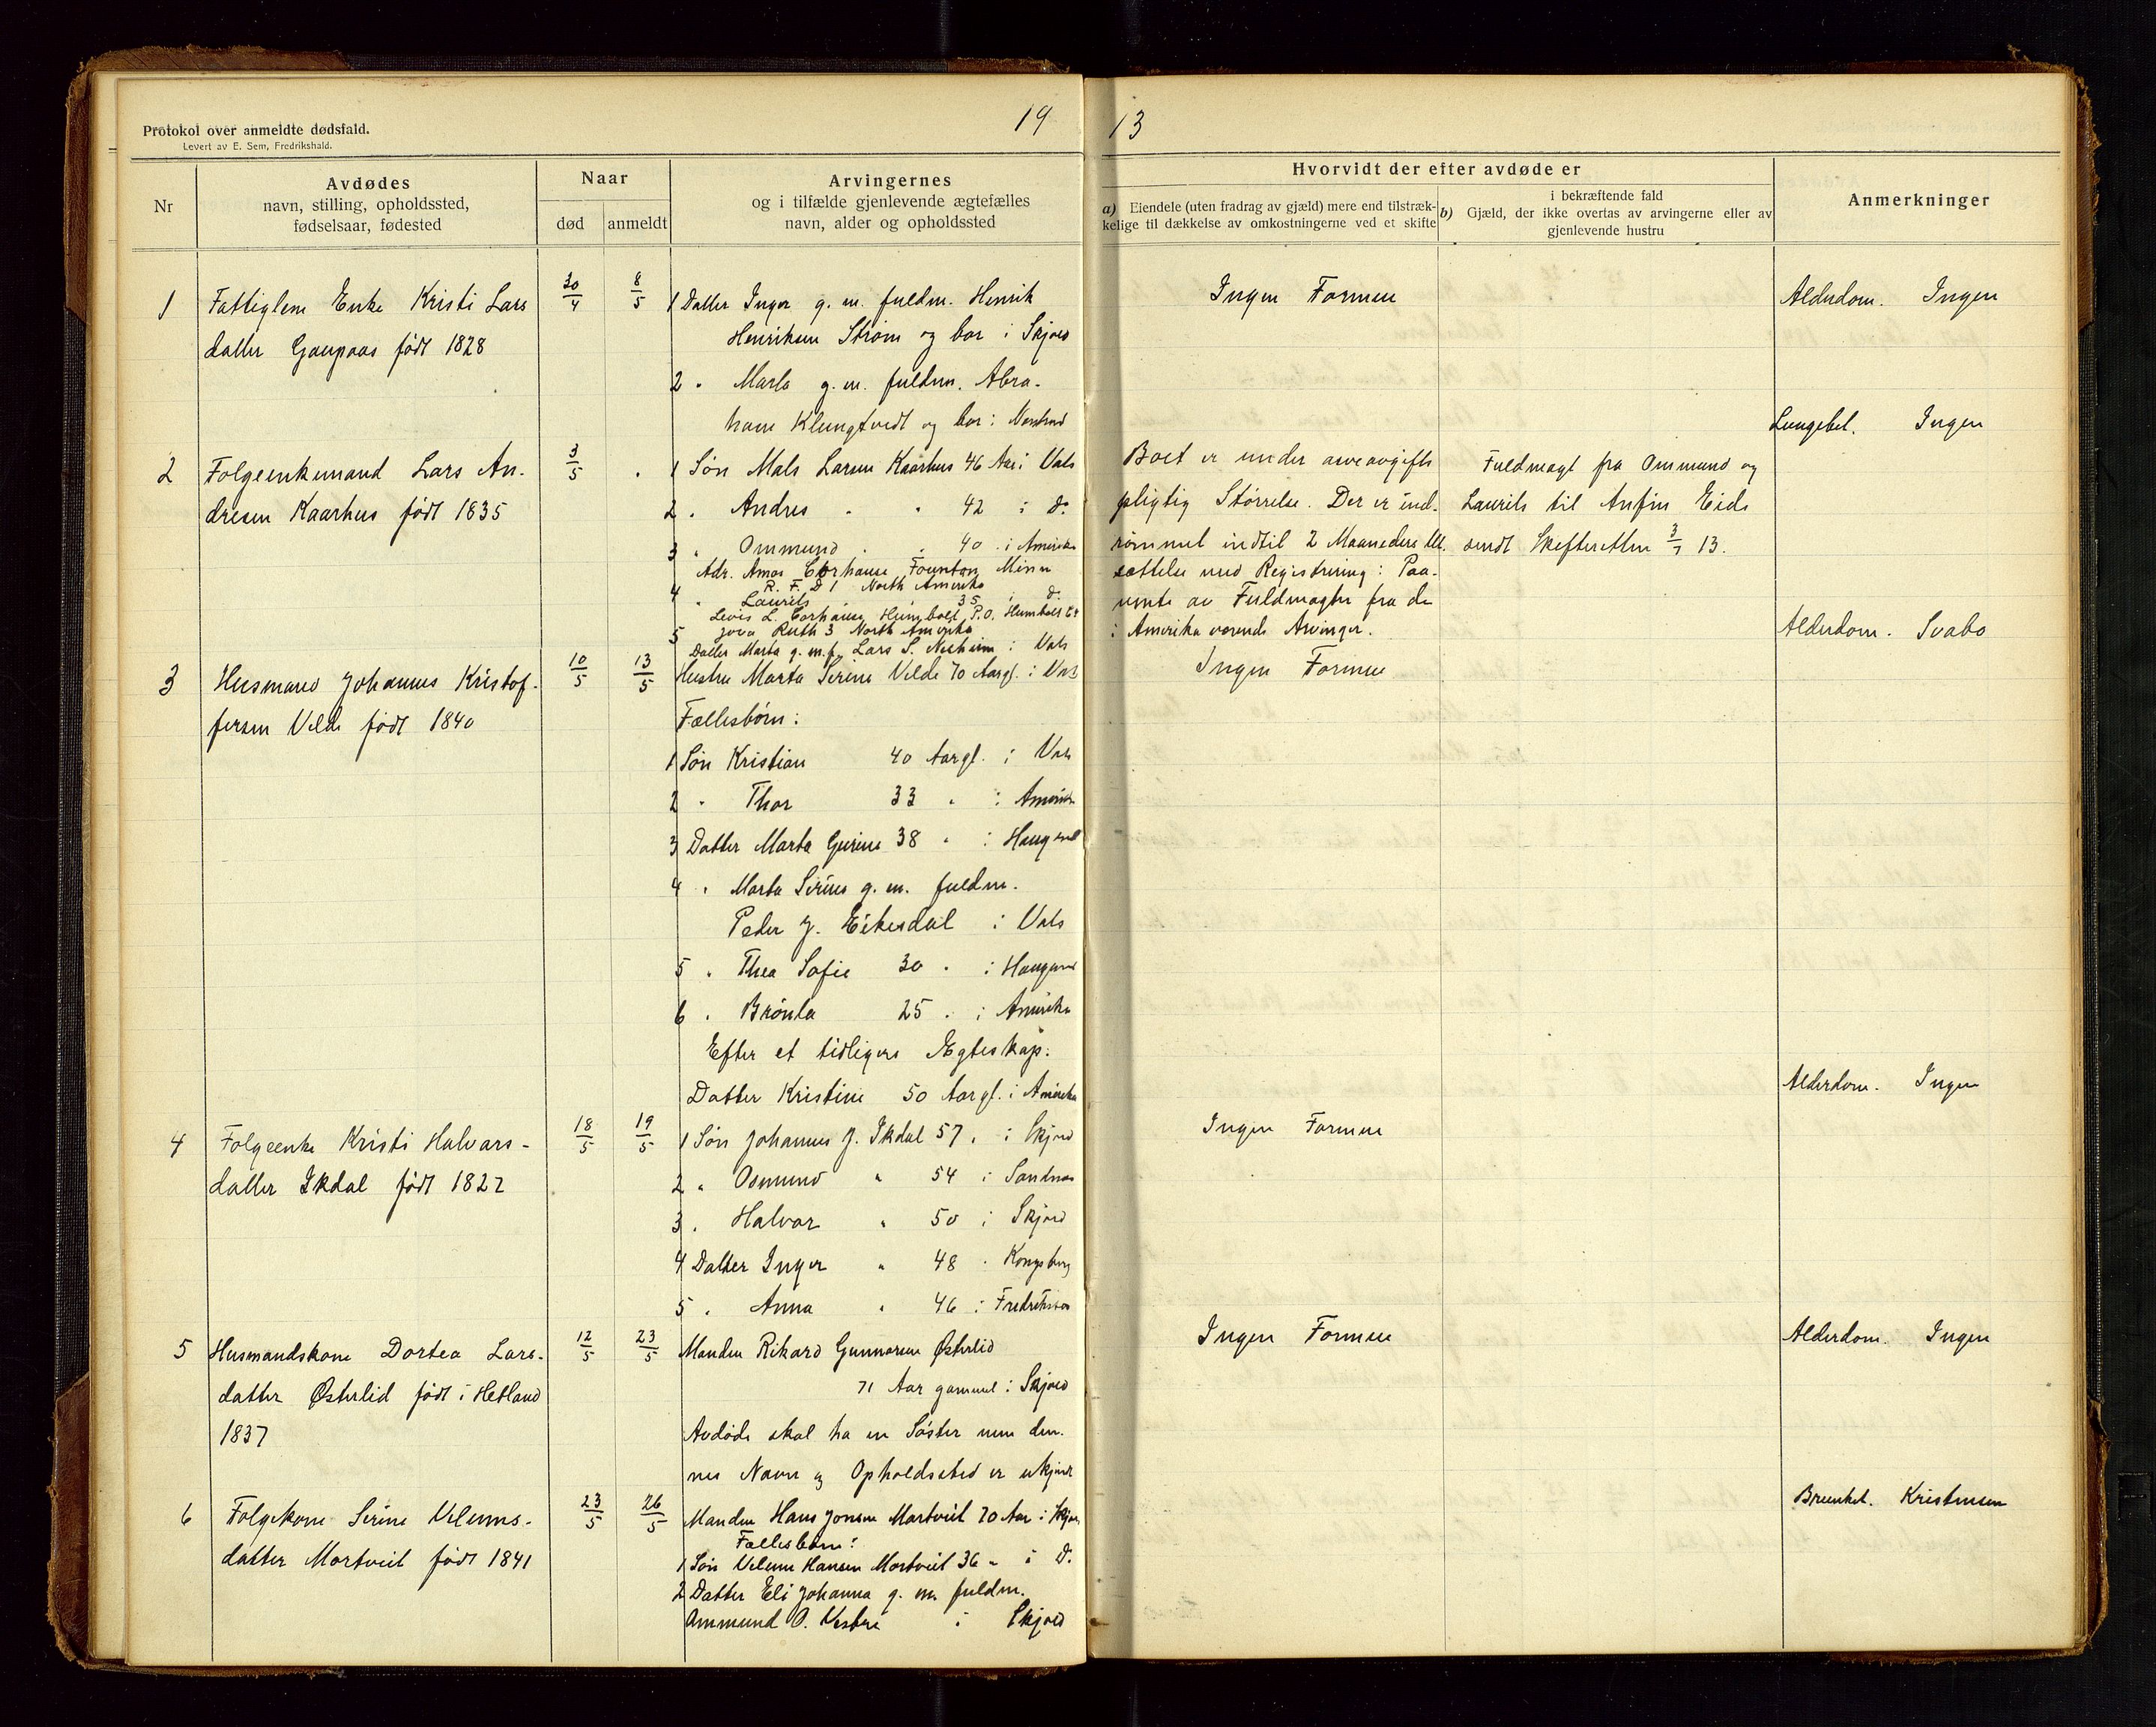 Protokol over anmeldte dødsfald.
Levert av E. Sem, Fredrikshald.
19
13
Nr
Avdødes
navn, stilling, opholdssted,
fødselsaar, fødested
Naar
død
anmeldt
Arvingernes
og i tilfælde gjenlevende ægtefælles
navn, alder og opholdssted
Hvorvidt der efter avdøde er
a) Eiendele (uten fradrag av gjæld) mere end tilstræk-
kelige til dækkelse av omkostningerne ved et skifte
i bekræftende fald
b) Gjæld, der ikke overtas av arvingerne eller av
gjenlevende hustru
Anmerkninger
1
Fattiglem Enke Kristi Lars
datter Gaupaas født 1828
30/4
8/5
1 Datter Inger g. m. fuldm. Henrik
Henriksen Strøm og bor i Skjold
2 " Marta g. m. fuldm. Abra-
ham Klungtvedt og bor i
Ingen Formue
Alderdom. Ingen
2
Folgeenkemand Lars An-
dresen Kaarhus født 1835
3/5
"
1 Søn Mats Larsen Kaarhus 46 Aar i Vats
2 " Andres " " 42 i do
3 " Ommund " " 40 i Amerika
Adr. Amos Corhause Founton Minn
R. F. D 1 North Amerika
4 " Laurits " 35 i do
Levis L. Corhause Humbolt P.O. Humbolt Co
Jova Ruth 3 North Amerika
5 Datter Marta g. m. f. Lars S. Nesheim i Vats
Boet er under arveavgifts
pligtig Størrelse. Der er ind-
rømmet indtil 2 Maaneders Ut-
sættelse med Registrering i Paa-
vente av Fuldmagter fra de
i Amerika værende Arvinger.
Fuldmagt fra Ommund og
Laurits til Anfin Eide
sendt Skifteretten 3/7 13.
Lungebet. Ingen
3
Husmand Johannes Kristof-
fersen Velde født 1840
10/5
13/5
Hustru Marta Serine Velde 70 Aargl. i Vats
Fællesbörn:
1 Søn Kristian 40 Aargl. i Vats
2 " Thor 33 " i Amerika
3 Datter Marta Gurine 38 " i Haugesund
4 " Marta Serine g. m. fuldm.
Peder J. Eikesdal i Vats
5 " Thea Sofie 30 " i Haugesund
6 " Brönla 25 " i Amerika
Efter et tidligere Ægteskap:
Datter Kristine 50 Aargl. i Amerika
Ingen Formue
Alderdom. Svabo
4
Folgeenke Kristi Halvors-
datter Ikdal født 1822
18/5
19/5
1 Søn Johannes J. Ikdal 57 " i Skjold
2 " Osmund " 54 i Sandnes
3 " Halvor " 50 i Skjold
4 Datter Inger " 48 " Kongsberg
5 " Anna " 46 i Fredrikstad
Ingen Formue
Alderdom. Ingen
5
Husmandskone Dortea Lars-
datter Østerlid født i Hetland
1837
12/5
23/5
Manden Rikard Gunnarsen Østerlid
71 Aar gammel i Skjold
Avdøde skal ha en Søster men den-
nes Navn og Opholdssted er ukjendt
Ingen Formue
Alderdom. Ingen
6
Folgekone Serine Velems-
datter Mortveit født 1841
23/5
26/5
Manden Hans Jonsen Mortveit 70 Aar i Skjold
Fællesbørn:
1 Søn Velem Hansen Mortveit 36 " i do
2 Datter Eli Johanna g. m. fuldm.
Ommund O. i Skjold
Kristensen